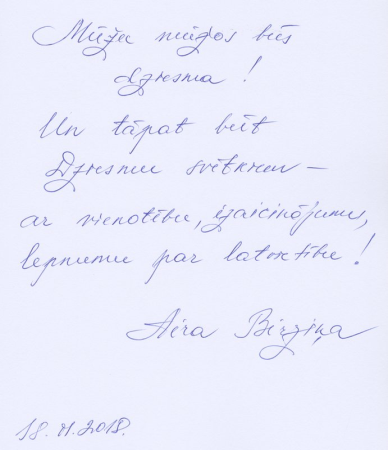 Mūžu mūžos būs
dziesma!
Un tāpat būt
Dziesmu svētkiem –
ar vienotību, izaicinājumu,
lepnumu par latvietību!
Aira Birziņa
18. XI. 2018.